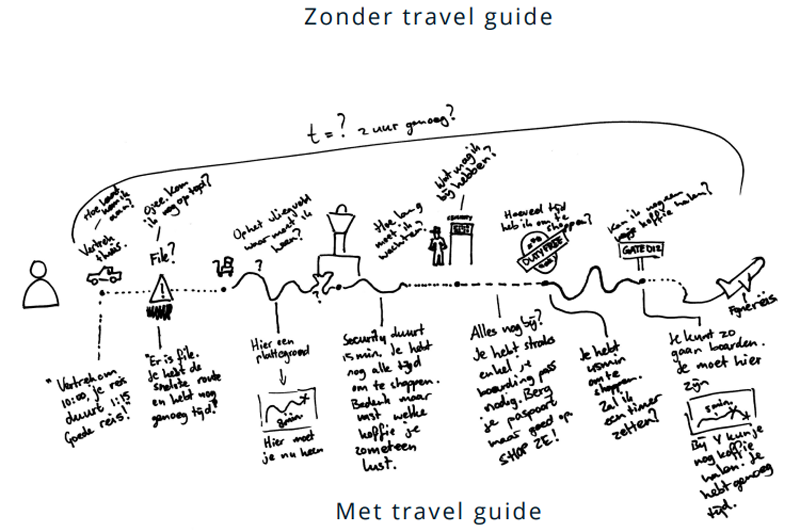 Zonder travel guide
t = ? 2 uur genoeg?
Hoe laat
kom ik
aan?
Vertrek
thuis.
Ojee. Kom
ik nog op tijd?
File?
Op het vliegveld
waar moet ik
heen?
?
?
Hoe lang
moet ik
wachten?
Wat mag ik
bij hebben?
SECURITY
Hoeveel tijd
heb ik om te
shoppen?
DUTY FREE
Kan ik nog een
kopje koffie halen?
GATE D12
Fijne reis
"Vertrek om
10:00, je reis
duurt 1:15
Goede reis!"
"Er is file.
Je hebt de
snelste route
en hebt nog
genoeg tijd."
Hier een
plattegrond
8min.
Hier moet
je nu heen
Security duurt
15 min. Je hebt
nog alle tijd
om te shoppen.
Bedenk maar
vast welke
koffie je
zometeen
lust.
Alles nog bij?
Je hebt straks
enkel je
boarding pass
nodig. Berg
je paspoort
maar goed op.
SHOP ZE!
Je hebt
45min
om te
shoppen.
Zal ik
een timer
zetten?
Je kunt zo
gaan boarden.
Je moet hier
zijn
5min.
Bij Y kun je
nog koffie
halen. Je
hebt genoeg
tijd.
Met travel guide